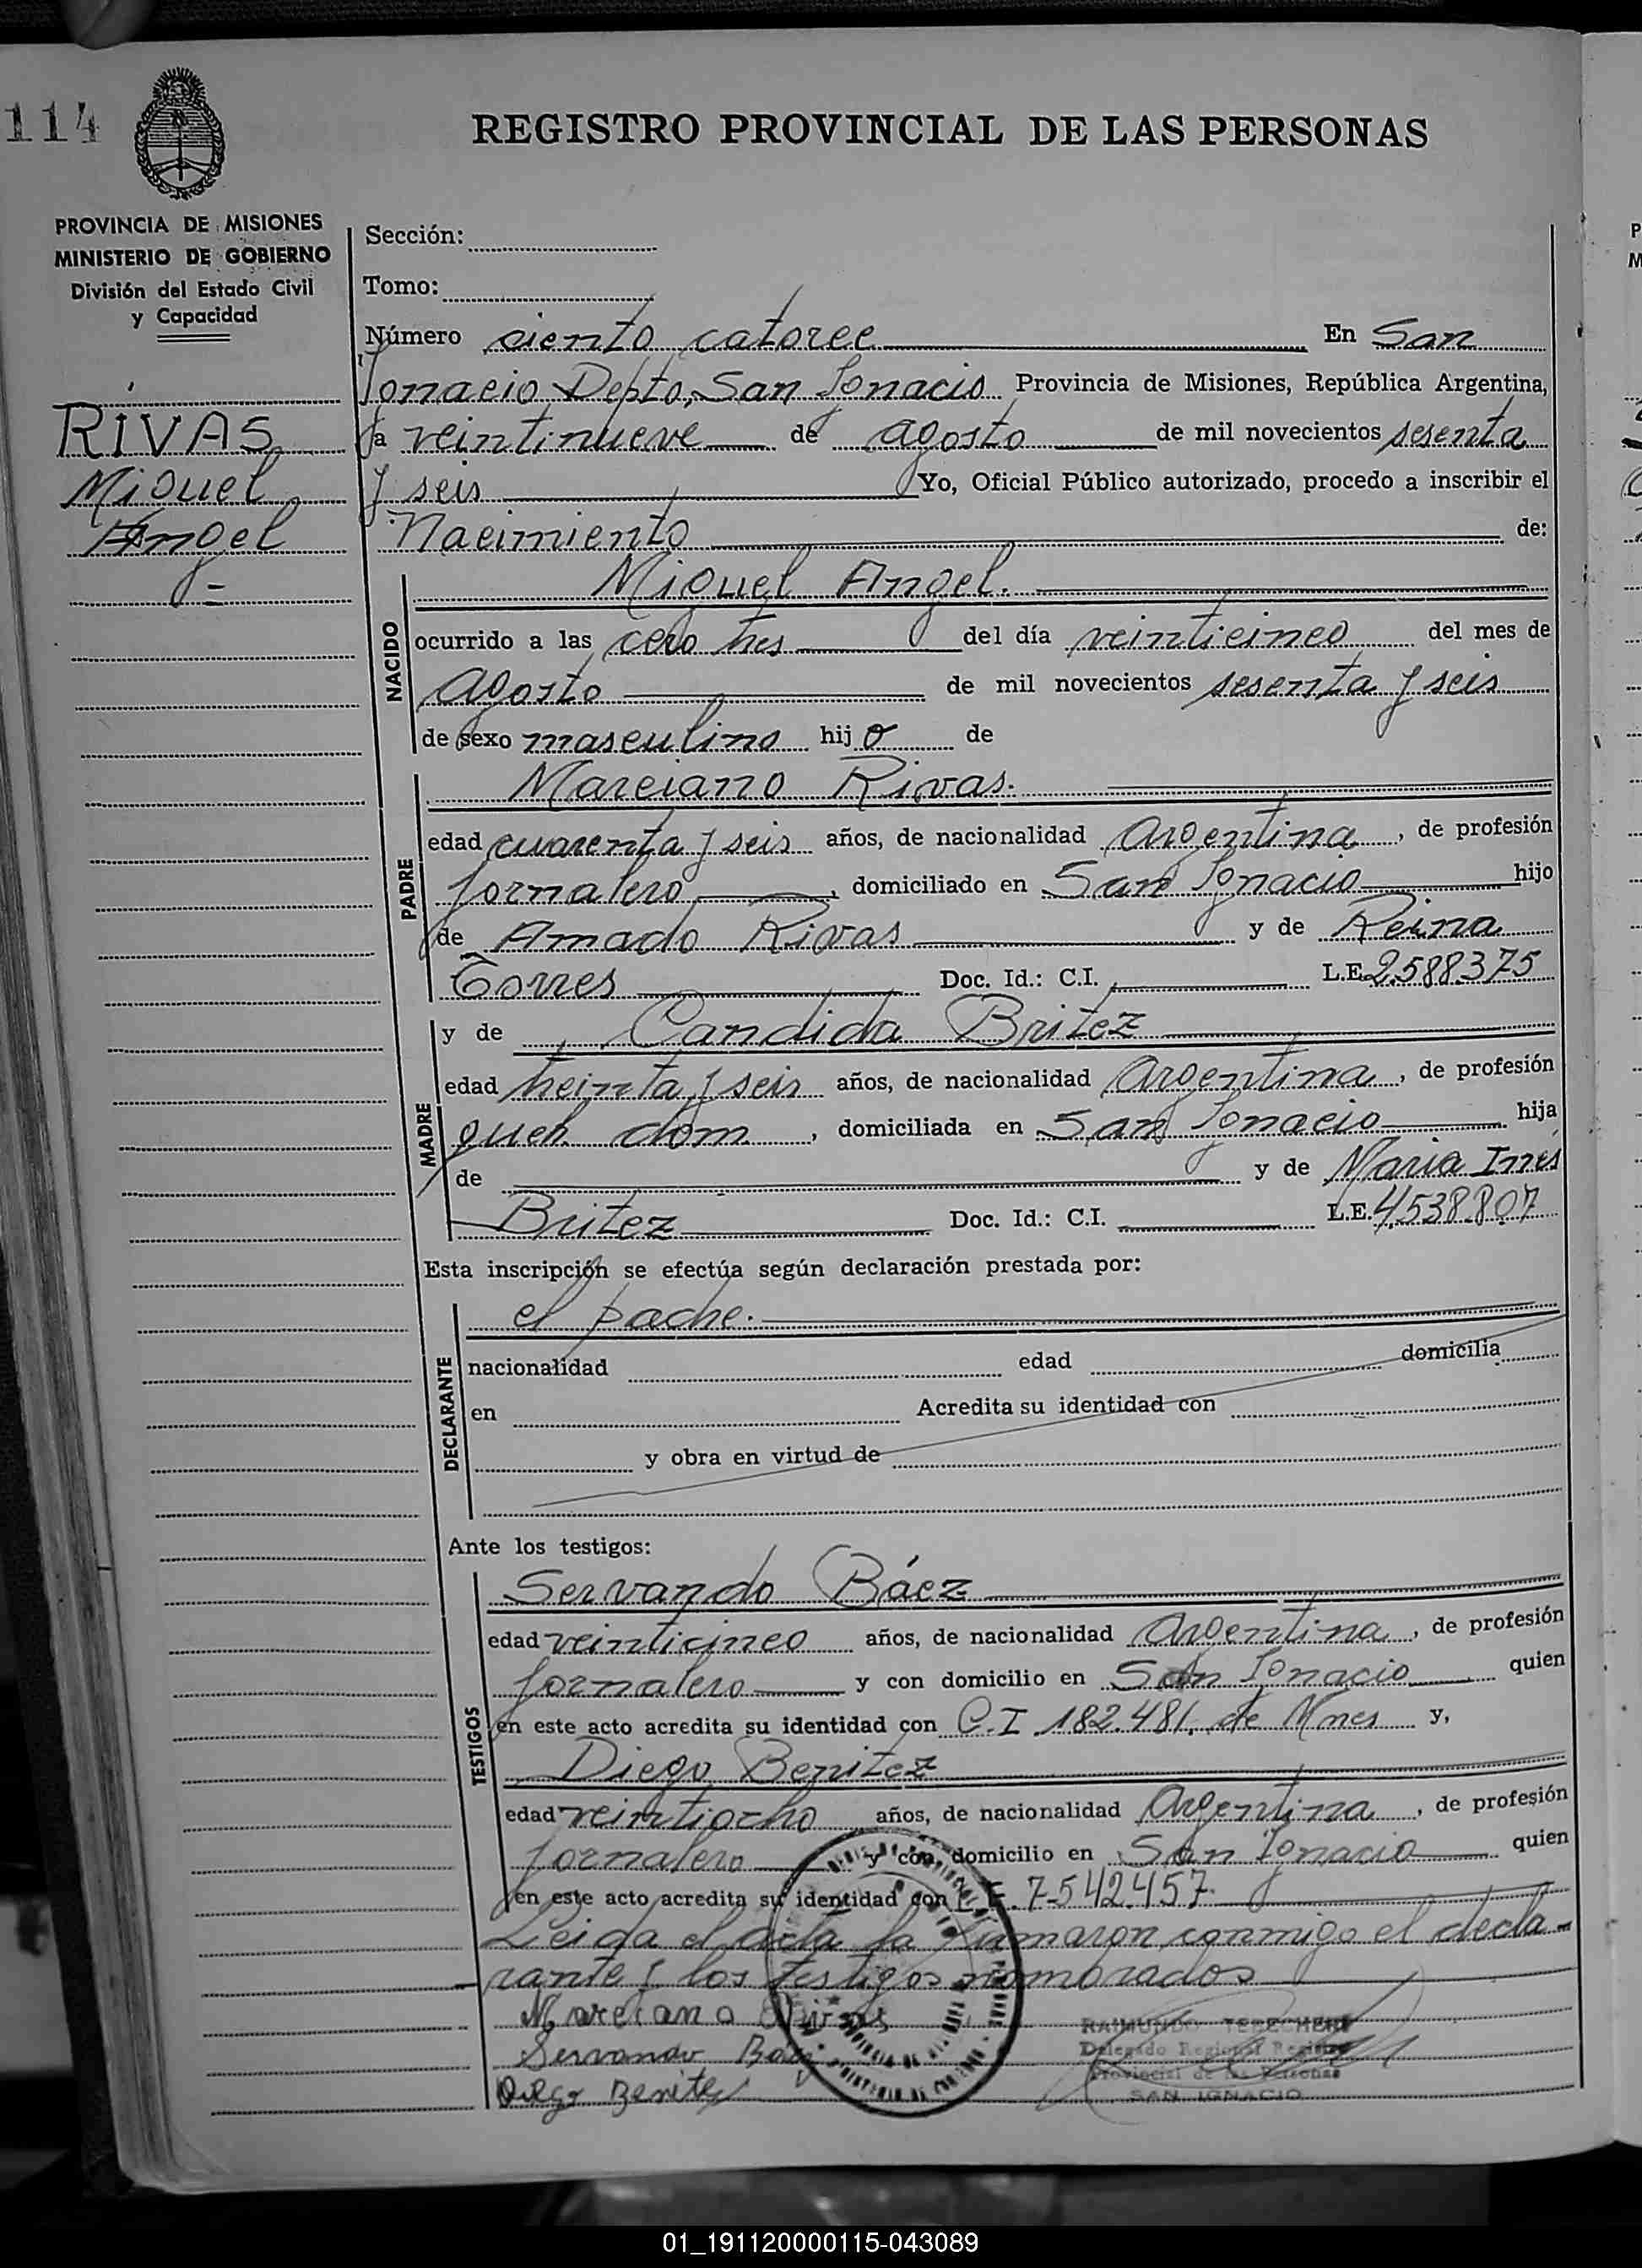 114
REGISTRO PROVINCIAL DE LAS PERSONAS
PROVINCIA DE MISIONES
MINISTERIO DE GOBIERNO
División del Estado Civil
y Capacidad
RIVAS
Miguel
Angel
Sección:
Tomo:
Número ciento catorce En San
Ignacio Depto, San Ignacio Provincia de Misiones, República Argentina,
a veintinueve de agosto de mil novecientos sesenta
y seis Yo, Oficial Público autorizado, procedo a inscribir el
Nacimiento de:
NACIDO
Miguel Angel.
ocurrido a las cero tres del día veinticinco del mes de
agosto de mil novecientos sesenta y seis
de sexo masculino hijo de
PADRE
Marciano Rivas.
edad cuarenta y seis años, de nacionalidad Argentina, de profesión
jornalero, domiciliado en San Ignacio hijo
de Amado Rivas y de Reina
Torres Doc. Id.: C.I. L.E. 2588375
MADRE
y de Candida Britez
edad treinta y seis años, de nacionalidad Argentina, de profesión
queh. dom, domiciliada en San Ignacio hija
de y de Maria Ines
Britez Doc. Id.: C.I. L.E. 4538.807
Esta inscripción se efectúa según declaración prestada por:
DECLARANTE
el padre.
nacionalidad edad domicilia
en Acredita su identidad con
y obra en virtud de
Ante los testigos:
TESTIGOS
Servando Báez
edad veinticinco años, de nacionalidad Argentina, de profesión
jornalero y con domicilio en San Ignacio quien
en este acto acredita su identidad con C.I 182.481. de Mnes y,
Diego Benitez
edad veintiocho años, de nacionalidad Argentina, de profesión
jornalero y con domicilio en San Ignacio quien
en este acto acredita su identidad con E. 7.542.457.
Leida el acta la firmaron conmigo el decla-
rante y los testigos nombrados
Marciano Rivas
Servando Baez
Diego Benitez
RAIMUNDO
Delegado Regional Registro
Provincial de las Personas
SAN IGNACIO
01_191120000115-043089